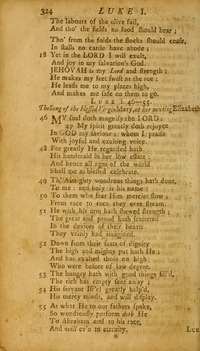 324 LUKE I.
The labours of the olive fail,
And tho' the fields no food should bear;
Tho' from the folds the flocks should cease,
In stalls no cattle have abode;
18 Yet in the LORD I will exult,
And joy in my salvation's God.
JEHOVAH is my Lord and strength;
He makes my feet swift as the roe;
He leads me to my places high,
And makes me safe on them to go.
LUKE I. 46-55.
The song of the blessed Virgin Mary, at her meeting Elizabeth
46 MY soul doth magnify the LORD;
47 My spirit greatly doth rejoyce
In GOD my Saviour; whom I praise
With joyful and exulting voice.
48 For greatly He regarded hath
His handmaid in her low estate;
And hence all ages of the world
Shall me as blessed celebrate.
49 Th' Almighty wondrous things hath done,
To me: and holy is his name:
50 To them who fear Him mercies flow,
From race to race they ever
51 He with his arm hath shewed strength;
The great and proud hath scattered
In the devices of their hearts
They vainly had imagined.
52 Down from their seats of dignity
The high and mighty put hath He;
And has exalted those on high
Who were before of low degree.
53 The hungry hath with good things fill'd,
The rich has empty sent away
54 His servant Isr'el greatly help'd,
His mercy minds, and will display.
55 As what He to our fathers spake,
So wondrously perform doth He
To Abraham and to his race,
And will ev'n to eternity.
LUK